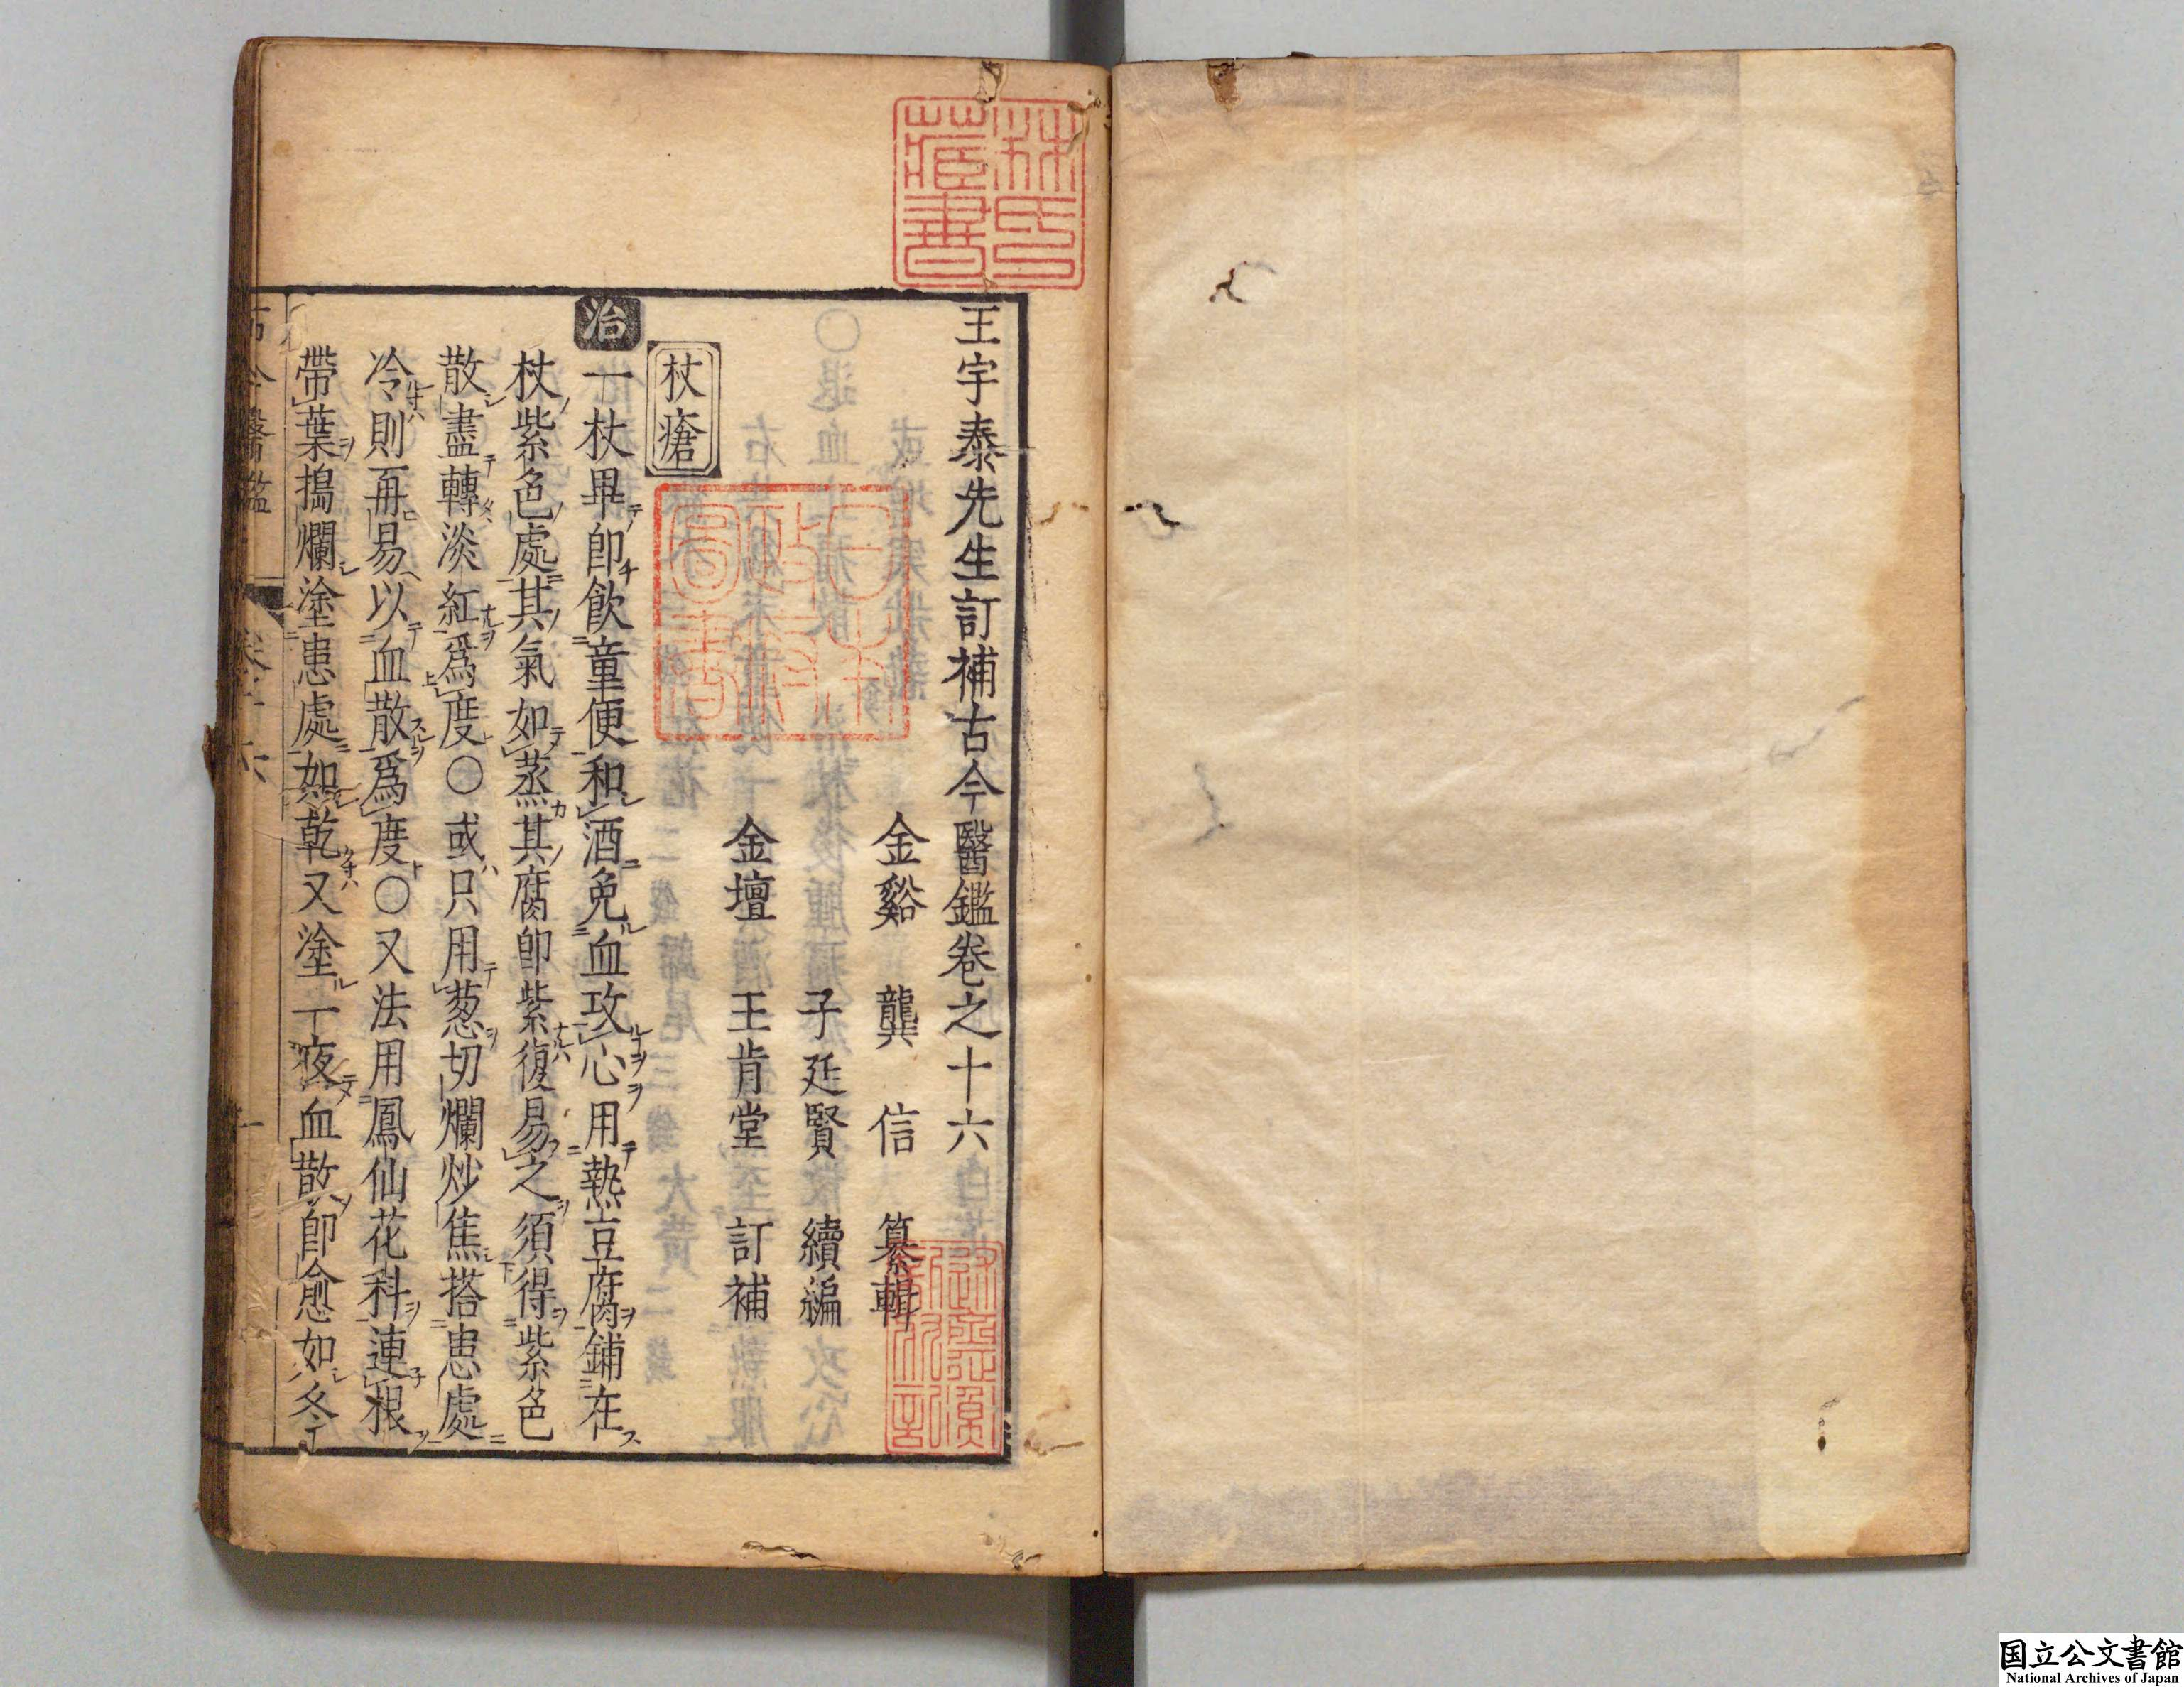 王宇泰先生訂補古今醫鑑卷之十六
金谿 龔 信 纂輯
子延賢 續編
金壇 王肯堂 訂補
杖瘡
治 一杖畢卽飮童便和酒免血攻心用熱豆腐鋪在
杖紫色處其氣如蒸其腐卽紫復易之須得紫色
散盡轉淡紅爲度〇或只用葱切爛炒焦搭患處
冷則再易以血散爲度〇又法用鳳仙花科連根
帶葉搗爛塗患處如乾又塗一夜血散卽愈如冬
林氏藏書
日本政府圖書
国立公文書館
National Archives of Japan